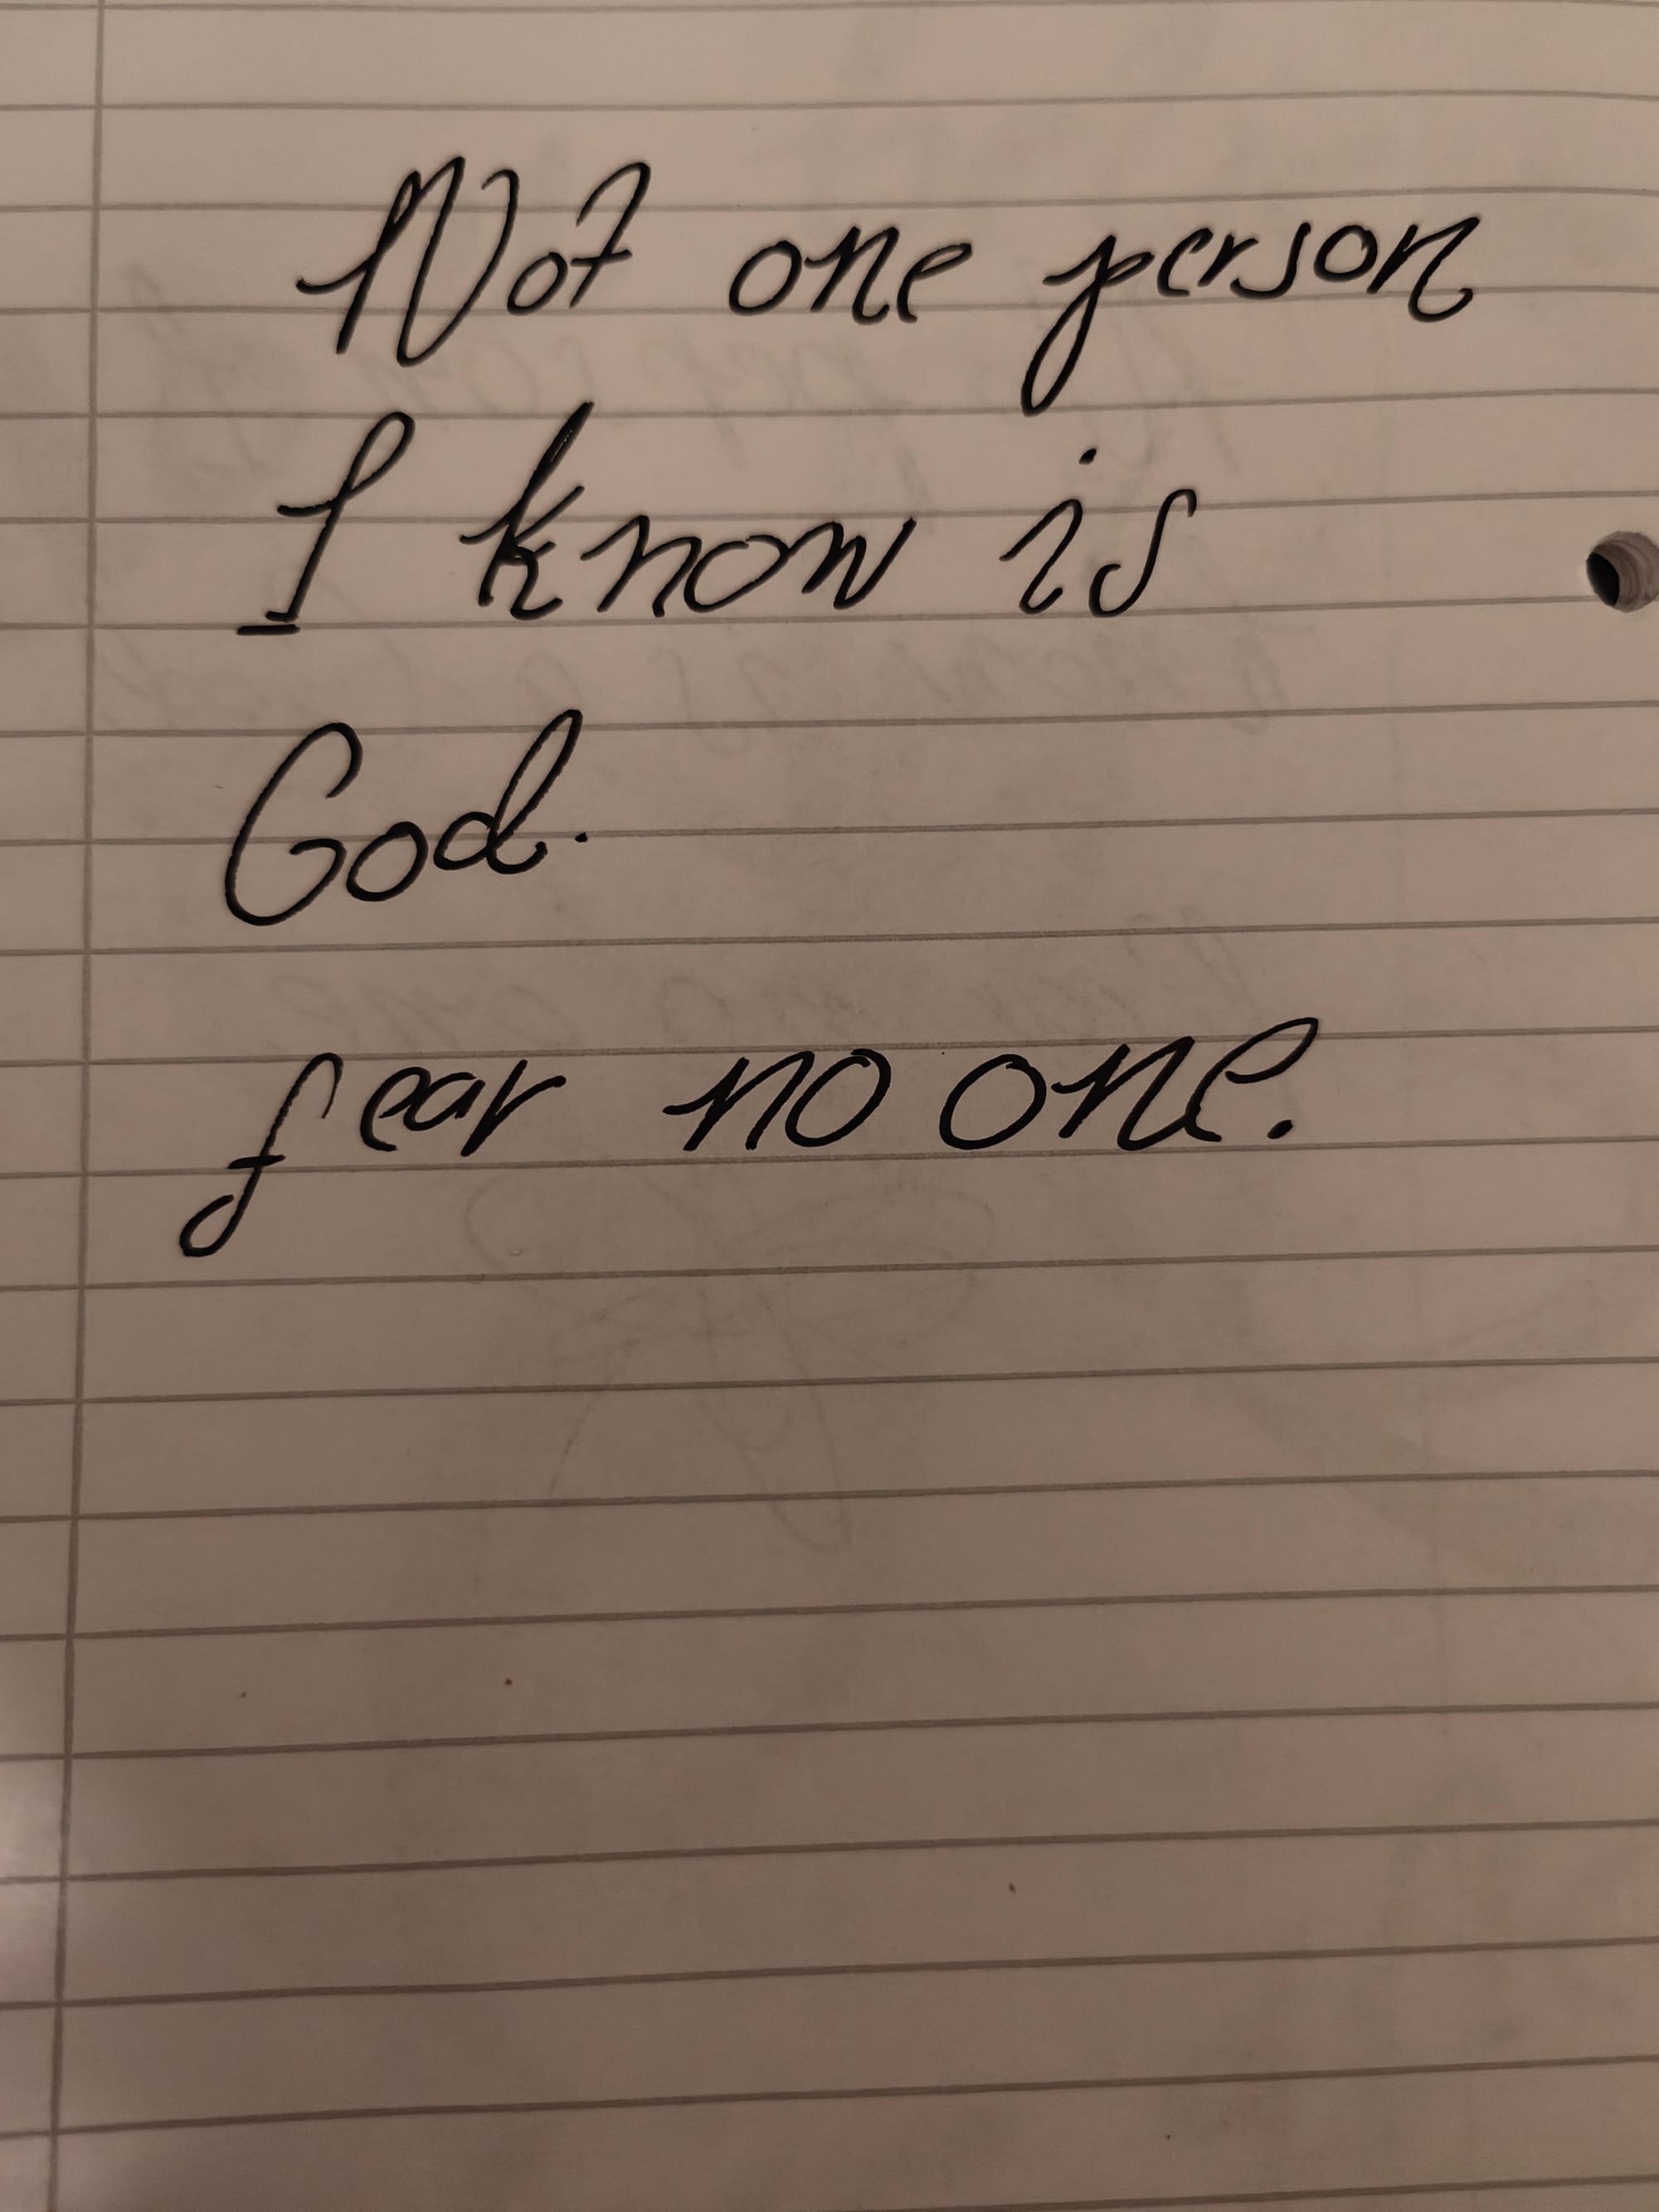 Not one person
I know is
God.
fear no one.